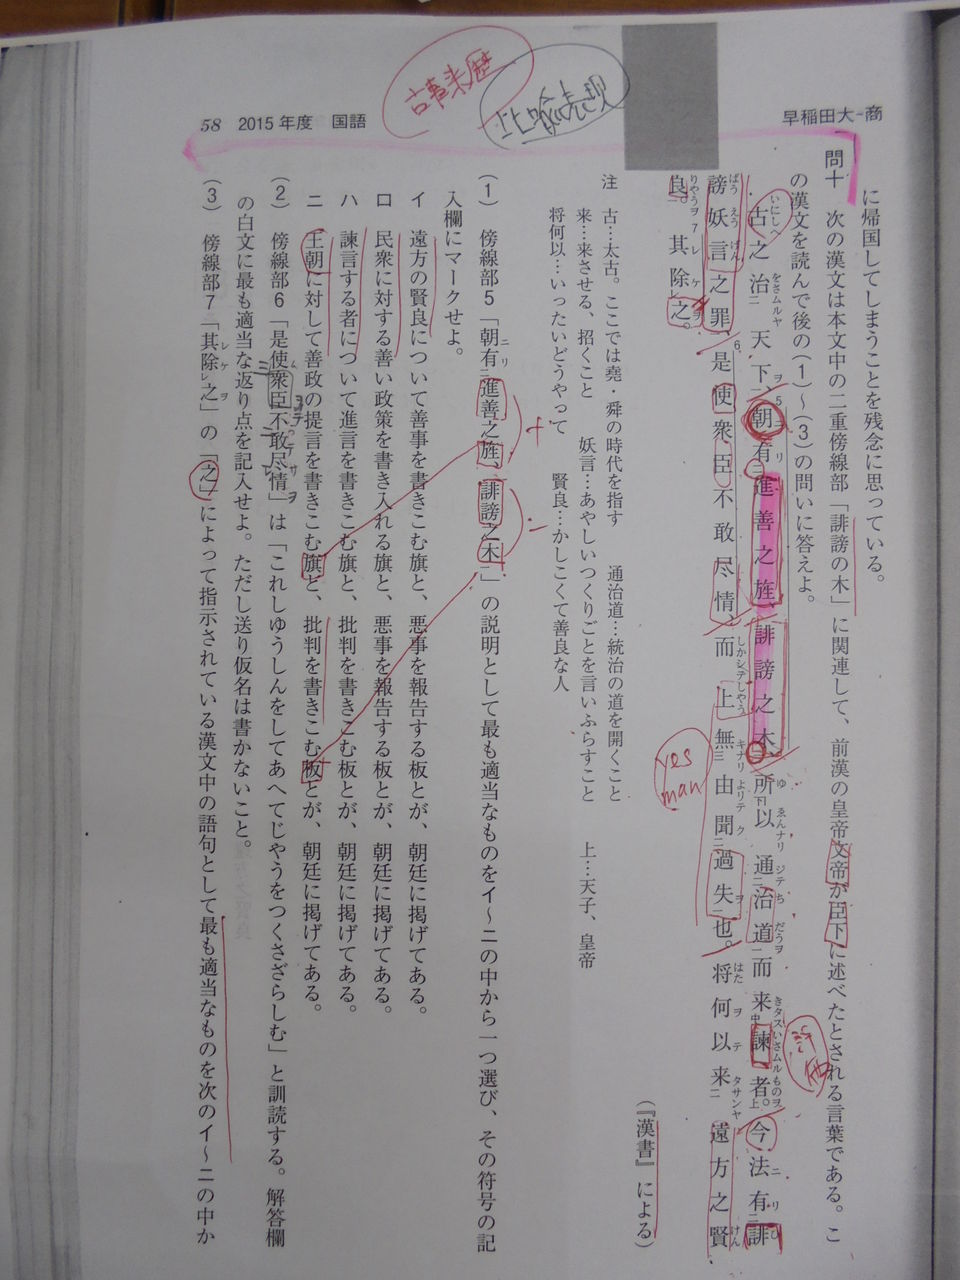 早稲田大-商
2015年度 国語 58
古事来歴
比喩表現
に帰国してしまうことを残念に思っている。
問十 次の漢文は本文中の二重傍線部「誹謗の木」に関連して、前漢の皇帝文帝が臣下に述べたとされる言葉である。こ
の漢文を読んで後の(1)~(3)の問いに答えよ。
古之治天下、朝有進善之旌、誹謗之木、所以通治道而来諫者。今法有誹
謗妖言之罪、是使衆臣不敢尽情、而上無由聞過失也。将何以来遠方之賢
良。其除之。
yes man
(『漢書』による)
注 古…太古。ここでは堯・舜の時代を指す 通治道…統治の道を開くこと
来…来させる、招くこと 妖言…あやしいつくりごとを言いふらすこと 上…天子、皇帝
将何以…いったいどうやって 賢良…かしこくて善良な人
(1) 傍線部5「朝有進善之旌、誹謗之木」の説明として最も適当なものをイ~ニの中から一つ選び、その符号の記
入欄にマークせよ。
イ 遠方の賢良について善事を書きこむ旗と、悪事を報告する板とが、朝廷に掲げてある。
ロ 民衆に対する善い政策を書き入れる旗と、悪事を報告する板とが、朝廷に掲げてある。
ハ 諫言する者について進言を書きこむ旗と、批判を書きこむ板とが、朝廷に掲げてある。
ニ 王朝に対して善政の提言を書きこむ旗と、批判を書きこむ板とが、朝廷に掲げてある。
(2) 傍線部6「是使衆臣不敢尽情」は「これしゆうしんをしてあへてじやうをつくさざらしむ」と訓読する。解答欄
の白文に最も適当な返り点を記入せよ。ただし送り仮名は書かないこと。
(3) 傍線部7「其除之」の「之」によって指示されている漢文中の語句として最も適当なものを次のイ~ニの中か